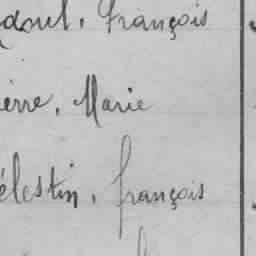 Raoul, François
ierre, Marie
élestin, françois